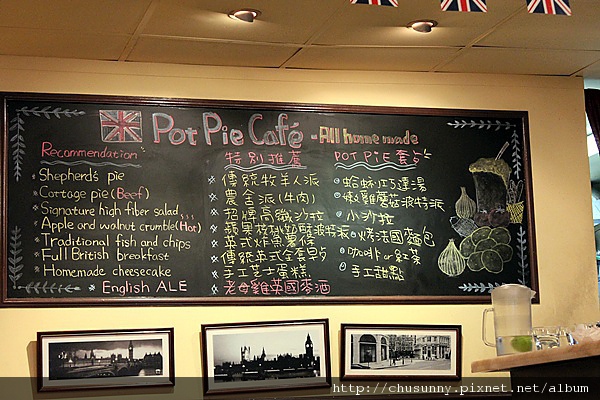 Pot Pie Café - All home made
Recommendation
Shepherd's pie
Cottage pie (Beef)
Signature high fiber salad
Apple and walnut crumble (Hot)
Traditional fish and chips
Full British breakfast
Homemade cheesecake
English ALE
特別推薦
傳統牧羊人派
農舍派(牛肉)
招牌高纖沙拉
蘋果核桃
英式炸魚薯條
傳統英式全套早餐
手工芝士蛋糕
老母雞英國麥酒
POT PIE 套餐
蛤蜊巧達湯
嫩雞蘑菇波特派
小沙拉
烤法國麵包
咖啡or紅茶
手工甜點
http://chusunny.pixnet.net/album